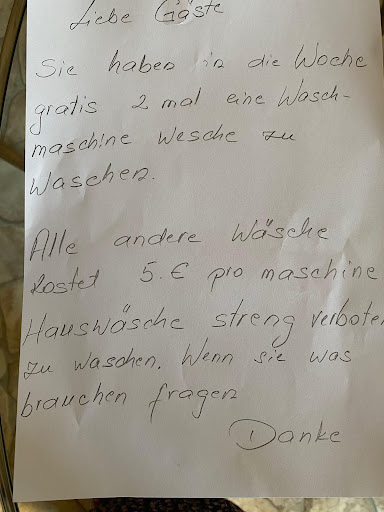 Liebe Gäste
Sie haben in die Woche
gratis 2 mal eine Wasch-
maschine Wesche zu
Waschen.
Alle andere Wäsche
kostet 5.€ pro maschine
Hauswäsche streng verboten
zu waschen. Wenn sie was
brauchen fragen
Danke